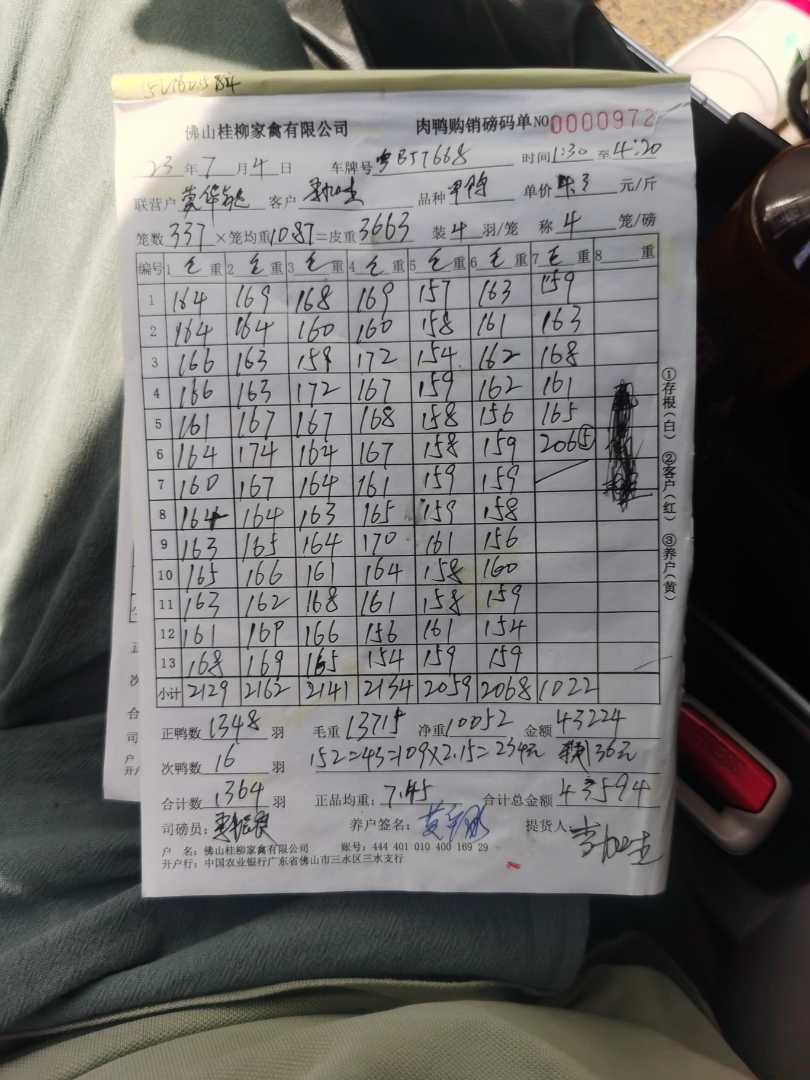 佛山桂柳家禽有限公司 肉鸭购销磅码单 NO 0000972
23 年 7 月 4 日 车牌号 粤BJ7668 时间 1:30 至 4:20
联营户 客户 品种 单价 4.3 元/斤
笼数 337 ×笼均重 1087 =皮重 3663 装 4 羽/笼 称 4 笼/磅
编号 1 毛 重 2 毛 重 3 毛 重 4 毛 重 5 毛 重 6 毛 重 7 毛 重 8 重
1 164 169 168 169 157 163 159
2 164 164 160 160 158 161 163
3 166 163 159 172 154 162 168
4 166 163 172 167 159 162 161
5 161 167 167 168 158 156 165
6 164 174 164 167 158 159 206⑤
7 160 167 164 161 159 159
8 164 164 163 165 159 158
9 163 165 164 170 161 156
10 165 166 161 164 158 160
11 163 162 168 161 158 159
12 161 169 166 156 161 154
13 168 169 165 154 159 159
小计 2129 2162 2141 2134 2059 2068 1022
正鸭数 1348 羽 毛重 13715 净重 10052 金额 43224
次鸭数 16 羽 152=43=109×2.15=234元 36元
合计数 1364 羽 正品均重: 7.45 合计总金额 43594
司磅员: 养户签名: 提货人:
户 名: 佛山桂柳家禽有限公司 账号: 444 401 010 400 169 29
开户行: 中国农业银行广东省佛山市三水区三水支行
①存根(白) ②客户(红) ③养户(黄)